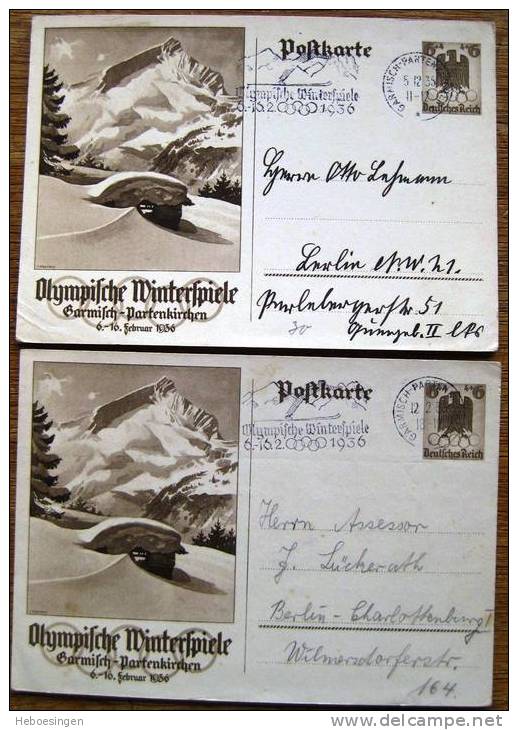 Postkarte
6+4 6
Deutsches Reich
GARMISCH-PARTEN
5.12.35
11-12
Olympische Winterspiele
6.-16.2. 1936
Herrn Otto Lehmann
Berlin N.W. 21.
Perlebergerstr. 51
30
Quergeb. II lks
Olympische Winterspiele
Garmisch-Partenkirchen
6.-16. Februar 1936
Postkarte
6 4+6
Deutsches Reich
GARMISCH-PARTEN
12.2
18
Olympische Winterspiele
6.-16.2. 1936
Herrn Assessor
J. Lückerath
Berlin-Charlottenburg
Wilmersdorferstr.
164.
Olympische Winterspiele
Garmisch-Partenkirchen
6.-16. Februar 1936
Heboesingen
delcampe.net